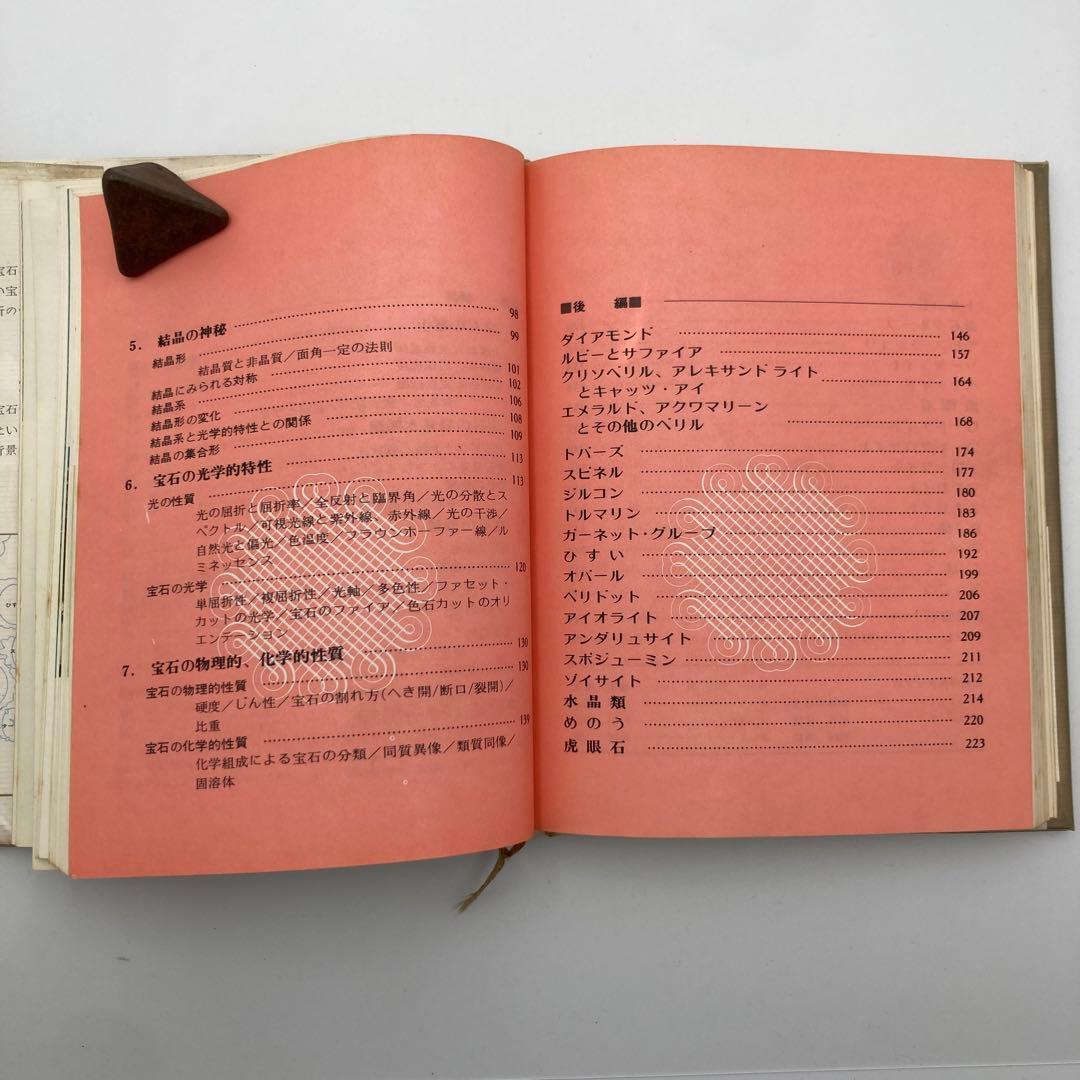 宝石
い宝
所の
宝石
たい
背景
5. 結晶の神秘 98
結晶形 99
結晶質と非晶質／面角一定の法則
結晶にみられる対称 101
結晶系 102
結晶形の変化 106
結晶系と光学的特性との関係 108
結晶の集合形 109
6. 宝石の光学的特性 113
光の性質 113
光の屈折と屈折率／全反射と臨界角／光の分散とス
ペクトル／可視光線と紫外線、赤外線／光の干渉／
自然光と偏光／色温度／フラウンホーファー線／ル
ミネッセンス
宝石の光学 120
単屈折性／複屈折性／光軸／多色性／ファセット・
カットの光学／宝石のファイア／色石カットのオリ
エンテーション
7. 宝石の物理的、化学的性質 130
宝石の物理的性質 130
硬度／じん性／宝石の割れ方(へき開/断口/裂開)／
比重
宝石の化学的性質 139
化学組成による宝石の分類／同質異像／類質同像／
固溶体
■後 編■
ダイアモンド 146
ルビーとサファイア 157
クリソベリル、アレキサンドライト
とキャッツ・アイ 164
エメラルド、アクワマリーン
とその他のベリル 168
トパーズ 174
スピネル 177
ジルコン 180
トルマリン 183
ガーネット・グループ 186
ひすい 192
オパール 199
ペリドット 206
アイオライト 207
アンダリュサイト 209
スポジューミン 211
ゾイサイト 212
水晶類 214
めのう 220
虎眼石 223